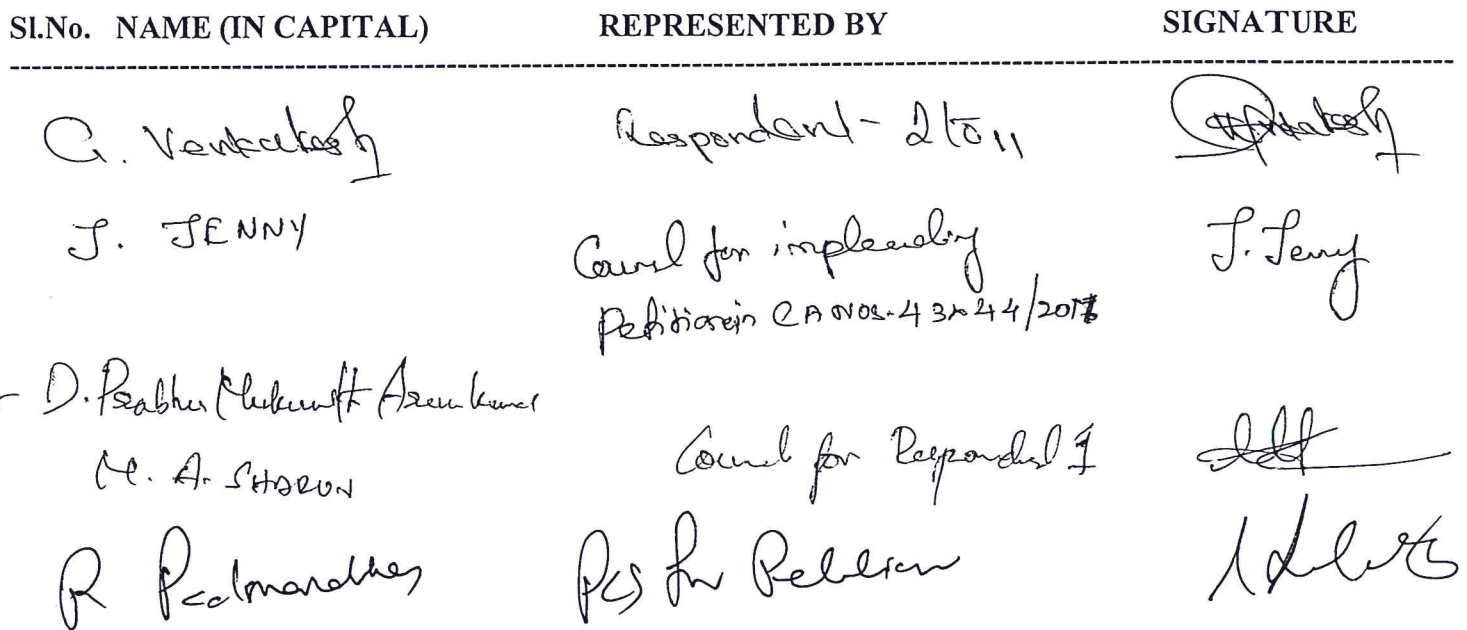 Sl.No. NAME (IN CAPITAL) REPRESENTED BY SIGNATURE
G. Venkatesh Respondant - 2 to 11 Venkatesh
J. JENNY Counsel for impleading J. Jenny
Petitioner in CA NOS. 43 & 44/2017
D. Prabhu Mukunth Arunkumar
M. A. SHARON Counsel for Respondent 1
R Padmanabhan PCS for Petitioner